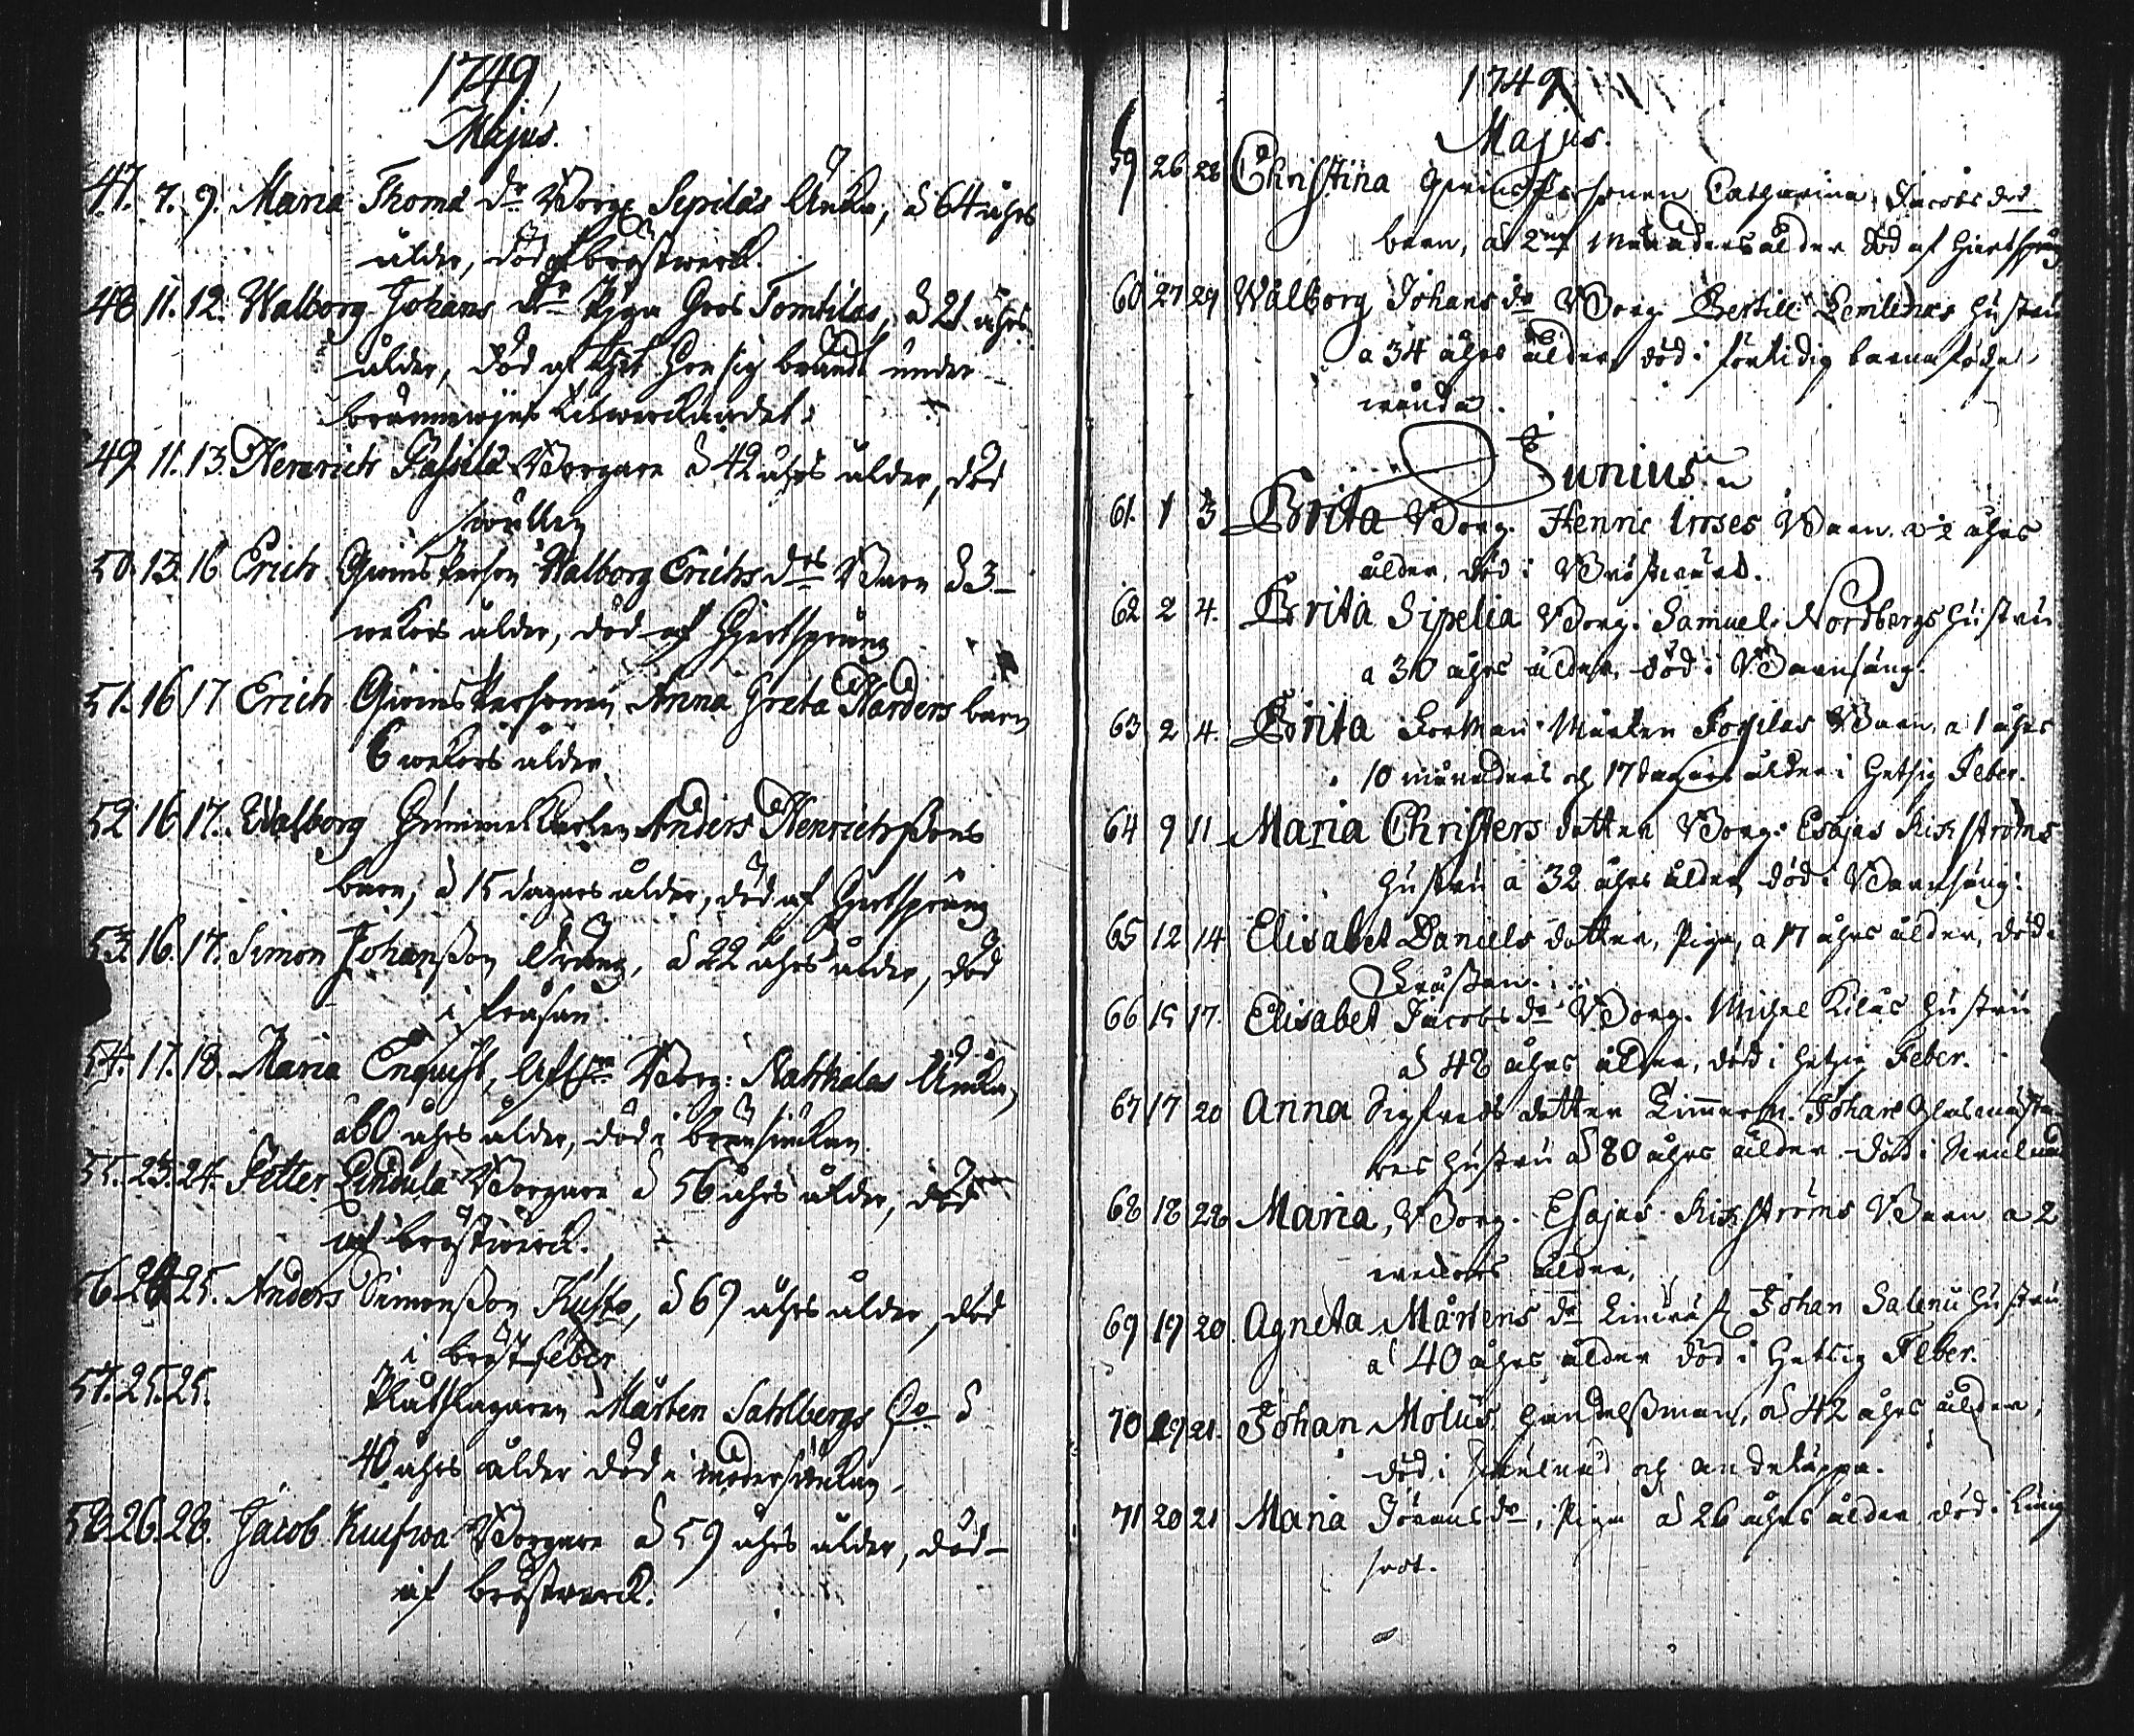 1749
Majus.
47. 7. 9. Maria Thomæ dr Borg. Sipilas Änka, å 64 åhrs
ålder, död af bröstwerck.
48 11. 12. Walborg Johans dr Piga hos Tomtilas, å 21 åhrs
ålder, död af thet hon sig brändt under
49 11. 13. Henrich Borgare å 42 åhrs ålder, död
50. 13. 16 Erich Qwinspersohn Walborg Erichs drs Barn å 3
wekors ålder, död af Hjertsprång
51. 16 17 Erich Qwinspersonen Anna Greta Harders barn
6 wekors ålder
52 16 17. Walborg Anders Henrichssons
barn, å 15 dagars ålder, död af Hjertsprång
53. 16. 17. Simon Johansson Dräng, å 22 åhrs ålder, död
i frasan.
54. 17. 18. Maria Enquist, Borg: Matthalas Änka,
å 60 åhrs ålder, död i
55. 23. 24. Petter Lindula Borgare å 56 åhrs ålder, död
af bröstwerck.
56. 24 25. Anders Simonsson Kusto, å 69 åhrs ålder, död
i bröstfeber
57. 25. 25. Platslagaren Mårten Sahlbergs å
40 åhrs ålder död i modersiukan
58. 26. 28. Jacob Borgare å 59 åhrs ålder, död
af bröstwerck.
1749
Majus.
59 26 28 Christina Qwinspersonen Catharina Jacobs drs
barn, å 2 Månaders ålder död af Hjertsprång
60 27 29 Walborg Johans dr Borg. Bertill hustru
a 34 åhrs ålder, död i förtidig barnsföds
wånda.
Junius.
61. 1 3 Brita Borg. Henric Irises Barn. a 2 åhrs
ålder, död i Bröstwärk.
62 2 4. Brita Sipelia Borg. Samuel Nordbergs hustru
a 30 åhrs ålder, död i Barnsäng.
63 2 4. Brita Mårten Barn, a 1 åhrs
10 månaders och 17 dagars ålder i hetsig Feber.
64 9 11 Maria Christers dotter Borg. Esajas Rickströms
hustru a 32 åhrs ålder, död i Barnsäng.
65 12 14 Elisabet Daniels dotter, Piga, a 17 åhrs ålder, död i
66 15 17. Elisabet Jacobs dr Borg. Michel Kilas hustru
å 48 åhrs ålder, död i hetsig Feber.
67 17 20 Anna Sigfreds dotter Timmerm. Johan Glasmästa
res hustru å 80 åhrs ålder död i
68 18 20 Maria, Borg. Esajas Rickströms Barn a 2
weckors ålder,
69 19 20. Agneta Mårtens dr Johan Salenii hustru
a 40 åhrs ålder död i Hetsig Feber.
70 19 21. Johan Molius, Handelssman, å 42 åhrs ålder,
död i och andtäppa.
71 20 21 Maria Jörans dr, Piga å 26 åhrs ålder död i Lung
soot.